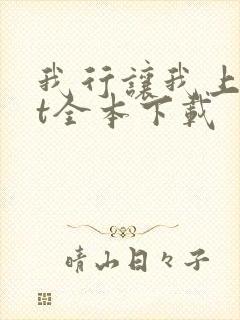 我行讓我上
t全本下載
晴山日々子